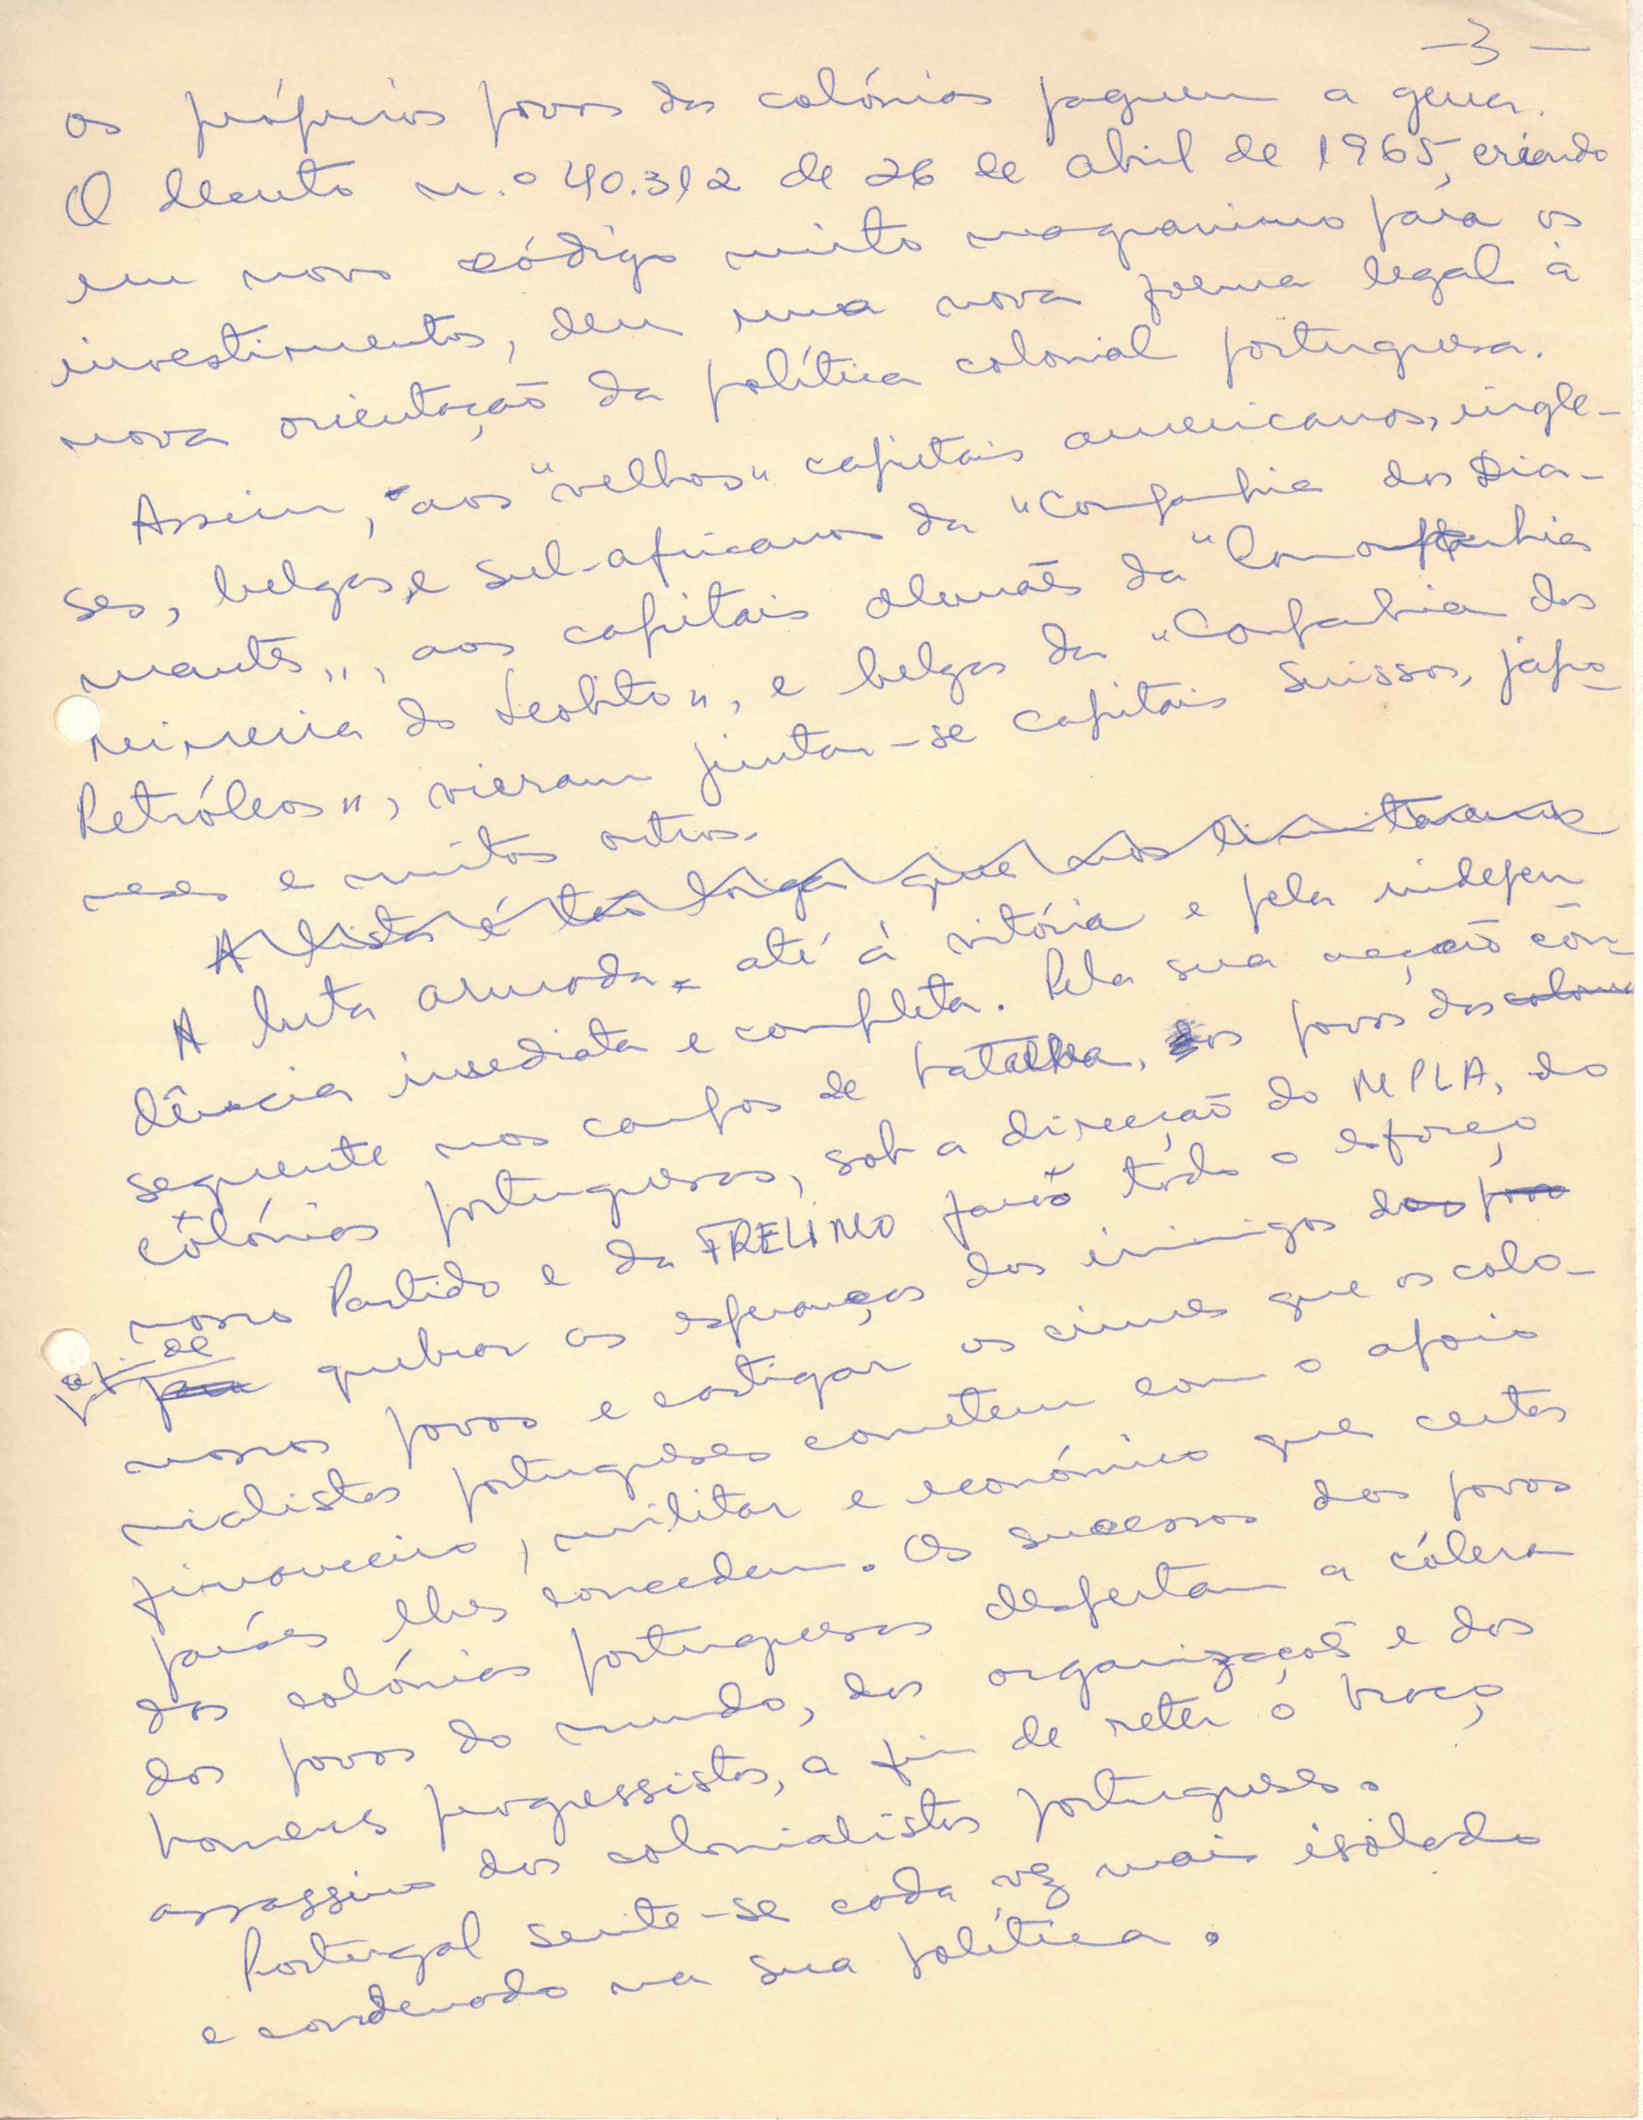 -3-
os próprios povos das colónias paguem a guerra.
O decreto n.º 40.312 de 26 de abril de 1965, criando
um novo código muito magnanimo para os
investimentos, deu uma nova forma legal à
nova orientação da política colonial portuguesa.
Assim, aos "velhos" capitais americanos, ingle-
ses, belgas, e sul-africanos da "Companhia dos Dia-
mantes", aos capitais alemães da "Companhia
mineira do Leobito", e belgas da "Companhia dos
Petróleos", vieram juntar-se capitais suissos, japo-
neses e muitos outros.
A lista é tão longa que nos limitamos
A luta armada até à vitória e pela indepen
dência imediata e completa. Pela sua acção con-
sequente nos campos de batalha, os povos das colon
colónias portuguesas, sob a direcção do MPLA, do
nosso Partido e da FRELIMO farão todo o esforço
de
para quebrar as esperanças dos inimigos dos povo
nossos povos e castigar os crimes que os colo-
nialistas portugueses cometem com o apoio
financeiro, militar e económico que certos
países lhes concedem. Os sucessos dos povos
das colónias portuguesas despertam a cólera
dos povos do mundo, das organizações e dos
homens progressistas, a fim de reter o braço
assassino dos colonialistas portugueses.
Portugal sente-se cada vez mais isolado
e condenado na sua política.